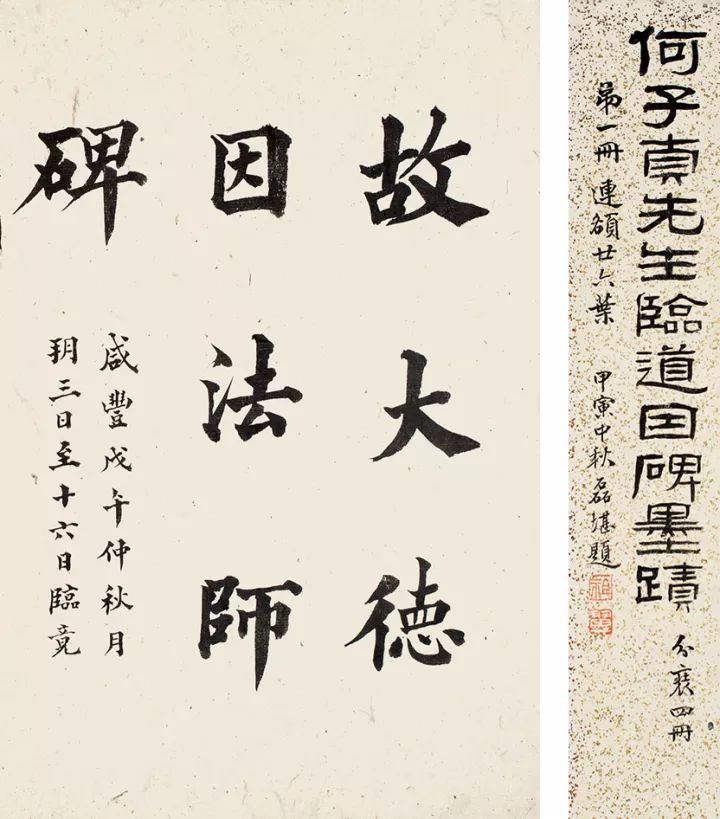 何子貞先生臨道因碑墨蹟 分裝四冊
弟一冊 連額廿六葉 甲寅中秋磊堪題
故大德
因法師
碑
咸豐戊午仲秋月
玥三日至十六日臨竟